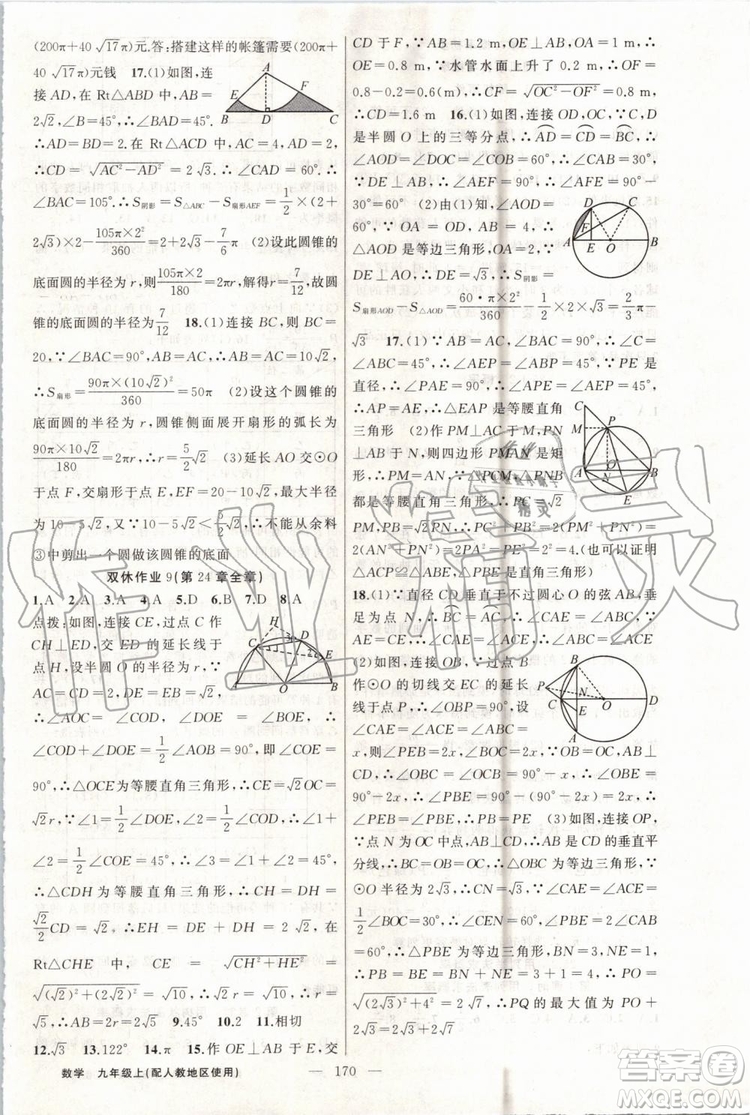 (200π+40√17π)元.答:搭建这样的帐篷需要(200π
+40√17π)元钱 17.(1)如图,连
接 AD,在 Rt△ABD 中,AB=
2√2,∠B=45°.∴∠BAD=45°.
∴AD=BD=2.在 Rt△ADC 中,AC=4,AD=2,
∴CD=√(AC²-AD²)=2√3.∴∠CAD=60°.∴
∠BAC=105°.∴S阴影=S△ABC-S扇形AEF=1/2×(2+
2√3)×2-105π×2²/360=2+2√3-7/6π (2)设此圆锥的
底面圆的半径为 r,则105π×2/180=2πr,解得 r=7/12,故圆
锥的底面圆的半径为7/12 18.(1)连接 BC,则 BC=
20,∵∠BAC=90°,AB=AC,∴AB=AC=10√2,
∴S扇形=90π×(10√2)²/360=50π (2)设这个圆锥的底面
圆的半径为 r,圆锥侧面展开扇形的弧长为
90π×10√2/180=5√2π (3)延长 AO 交⊙O
于点 F,交扇形于点 E,EF=20-10√2,最大半径
为 10-5√2,∵10-5√2<5/2√2,∴不能从余料
③中剪出一个圆做该圆锥的底面
双休作业 9(第 24 章全章)
1.A 2.A 3.A 4.A 5.D 6.B 7.D 8.A
点拨:如图,连接 CE,过点 C 作
CH⊥ED,交 ED 的延长线于点
H,设半圆 O 的半径为 r,∵
AC=CD=2,DE=EB=√2,∴
∠AOC=∠COD,∠DOE=∠BOE,∴
∠COD+∠DOE=1/2∠AOB=90°,即∠COE=
90°,∴△COE 为等腰直角三角形,∴CE=√2OC=
√2r.∵∠1=1/2∠DOE,∠2=1/2∠COD,∴∠1+
∠2=1/2∠COE=45°,∴∠CDH=∠1+∠2=45°,
∴△CDH 为等腰直角三角形,∴CH=DH=
√2/2CD=√2.∴HE=DE+DH=2√2.在
Rt△CHE 中,CE=√(CH²+HE²)=
√((√2)²+(2√2)²)=√10,∴√2r=√10,∴r=√5,
∴AB=2r=2√5 9.45° 10.2 11.相切
12.√3 13.122° 14.√5 15.作 OE⊥AB 于 E,交
CD 于 F,∵AB=1.2 m,OE⊥AB,OA=1 m,∴
OE=0.8 m,∵水管水面上升了 0.2 m,∴OF=
0.8-0.2=0.6(m),∴CF=√(OC²-OF²)=0.8 m,
∴CD=1.6 m 16.(1)如图,连接 OD,OC,∵C,D
是半圆 O 上的三等分点,∴AD=CD=BC,∴
∠AOD=∠DOC=∠COB=60°,∴∠CAB=30°,
∵DE⊥AB,∴∠AEF=90°,∴∠AFE=90°-
30°=60° (2)由(1)知,∠AOD=
60°,∵OA=OD,AB=4,∴
△AOD 是等边三角形,OA=2,
∵DE⊥AO,∴DE=√3,∴S阴影=
S扇形AOD-S△AOD=60·π×2²/360-1/2×2×√3=2/3π-
√3 17.(1)∵AB=AC,∠BAC=90°,∴∠C=
∠ABC=45°,∴∠AEP=∠ABP=45°,∵PE 是
直径,∴∠PAE=90°,∴∠APE=∠AEP=45°,
∴AP=AE,∴△EAP 是等腰直角
三角形 (2)作 PM⊥AC 于 M,PN⊥AB
于 N,则四边形 PMAN 是矩
形,∴PM=AN,∵△PCM,△PNB
都是等腰直角三角形,∴PC=√2
PM,PB=√2PN,∴PC²+PB²=2(PM²+PN²)=
2(AN²+PN²)=2PA²=PE²=2²=4(也可以证明
△ACP≌△ABE,△PBE 是直角三角形)
18.(1)∵直径 CD 垂直于不过圆心 O 的弦 AB,垂
足为点 N,∴BC=AC,∴∠CAE=∠ABC,∵AE=
CE,∴∠CAE=∠ACE,∴∠ACE=∠ABC
(2)如图,连接 OB,∵过点 B
作⊙O 的切线交 EC 的延长
线于点 P,∴∠OBP=90°,设
∠CAE=∠ACE=∠ABC=x,
则∠PEB=2x,∵OB=OC,AB⊥CD,
∴∠OBC=∠OCB=90°-x,∴∠BOC=180°-
2(90°-x)=2x,∴∠OBE=90°-2x,∴∠PBE=
90°-(90°-2x)=2x,∴∠PEB=
∠PBE,∴PB=PE (3)如图,连接 OP,
∵点 N 为 OC 中点,AB⊥CD,∴AB 是 CD 的垂直平
分线,∴BC=OB=OC,∴△OBC 为等边三角形,∵
⊙O 半径为 2√3,∴CN=√3,∵∠CAE=∠ACE=
1/2∠BOC=30°,∴∠CEN=60°,∠PBE=2∠CAB=
60°,∴△PBE 为等边三角形,∴∠BPE=60°,
∴PB=BE=2√3-1=2,∴PO=
√((2√3)²+2²)=4,∴PQ 的最大值为 PO+
2√3=2√3+2√7
数学 九年级上(配人教地区使用) — 170 —